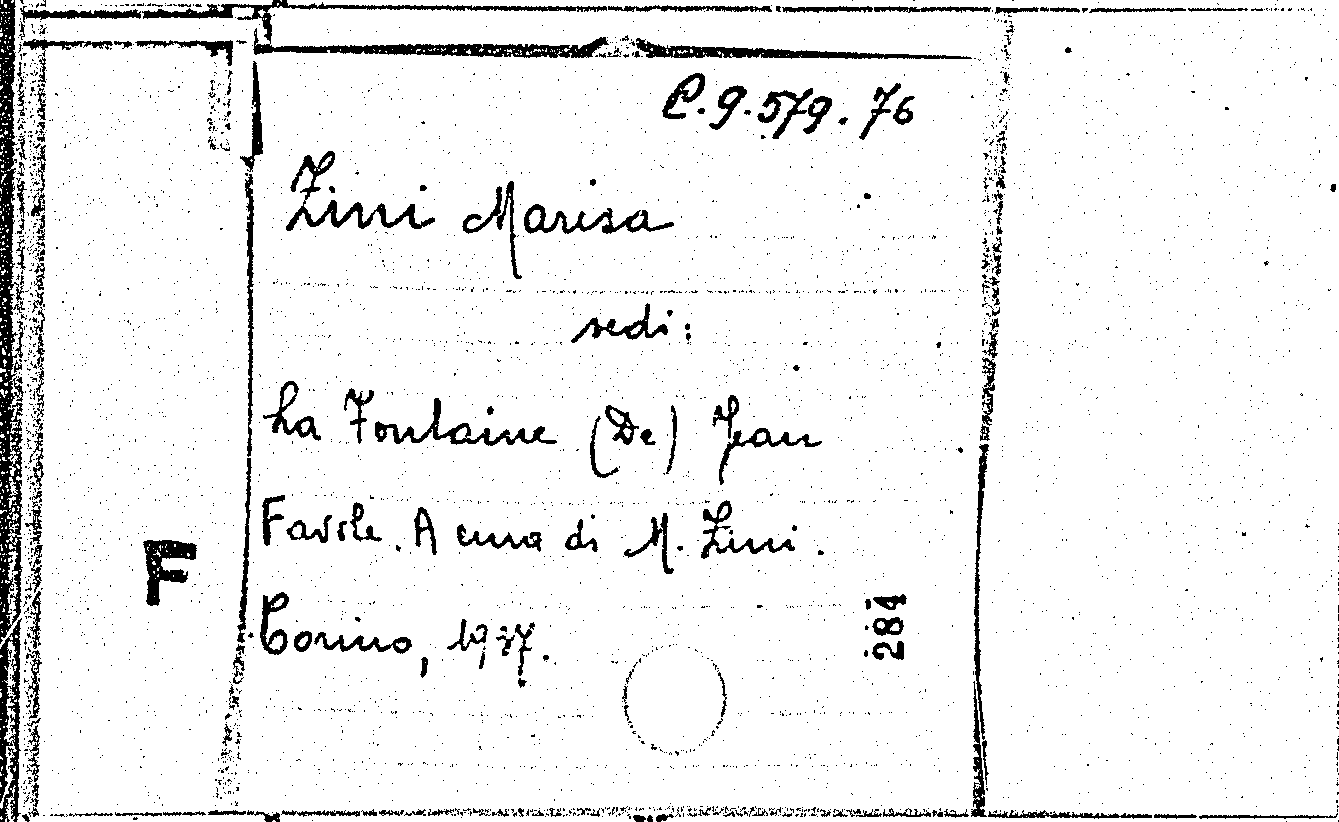 C.9.579.76
Zini Marisa
vedi:
La Fontaine (De) Jean
Favole. A cura di M. Zini.
Torino, 1937.
284
F